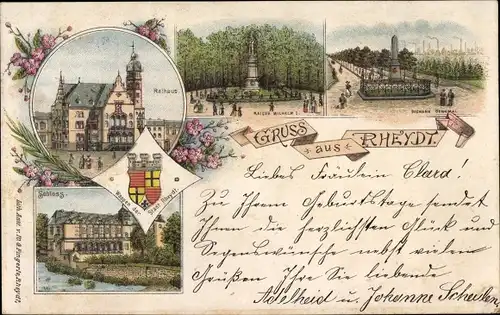 Rathaus.
KAISER WILHELM I.
BISMARCK DENKMAL
GRUSS aus RHEYDT.
Liebes Fräulein Clara!
Zu Ihrem Geburtstage sendet
Ihnen die herzlichsten Glück und
Segenswünsche nebst vielen
Grüßen Ihre Sie liebende
Adelheid u. Johanne
Wappen der
Stadt Rheydt.
Schloss
Lith. Anst. v.
Rheydt.